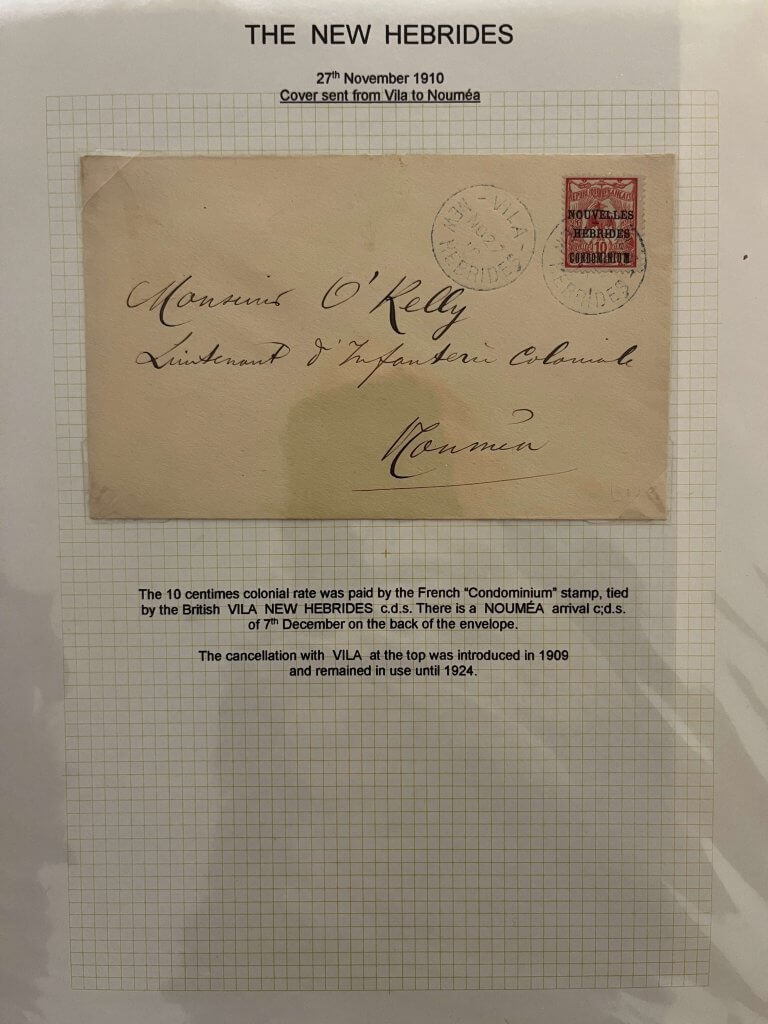 THE NEW HEBRIDES
27th November 1910
Cover sent from Vila to Nouméa
- VILA -
NO 27
10
NEW HEBRIDES
RÉPUBLIQUE FRANÇAISE
NOUVELLES
HÉBRIDES
10
CONDOMINIUM
HEBRIDES
Monsieur O'Kelly
Lieutenant d'Infanterie Coloniale
Nouméa
The 10 centimes colonial rate was paid by the French "Condominium" stamp, tied
by the British VILA NEW HEBRIDES c.d.s. There is a NOUMÉA arrival c;d.s.
of 7th December on the back of the envelope.
The cancellation with VILA at the top was introduced in 1909
and remained in use until 1924.